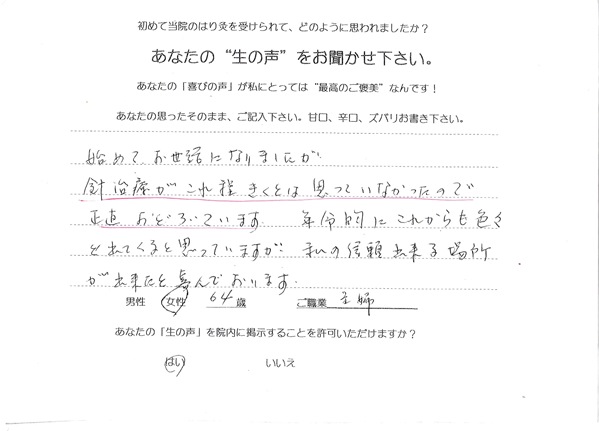 初めて当院のはり灸を受けられて、どのように思われましたか？
あなたの“生の声”をお聞かせ下さい。
あなたの「喜びの声」が私にとっては“最高のご褒美”なんです！
あなたの思ったそのまま、ご記入下さい。甘口、辛口、ズバリお書き下さい。
始めてお世話になりましたが
針治療がこれ程きくとは思っていなかったので
正直おどろいています 年令的にこれからも色々
と出てくると思っていますが 私の信頼出来る場所
が出来たと喜んでおります
男性 女性 64 歳 ご職業 主婦
あなたの「生の声」を院内に掲示することを許可いただけますか？
はい いいえ